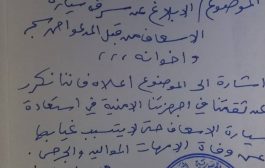 الموضوع / الابلاغ عن سرقة سيارة
الاسعاف من قبل المدعو
واخوانه
اشارة الى الموضوع اعلاه فاننا نكرر
عن ثقتنا في اجهزتنا الامنية في استعادة
سيارة الاسعاف حتى لا يتسبب غيابها
من وفاة الامهات الموالين والجرحى